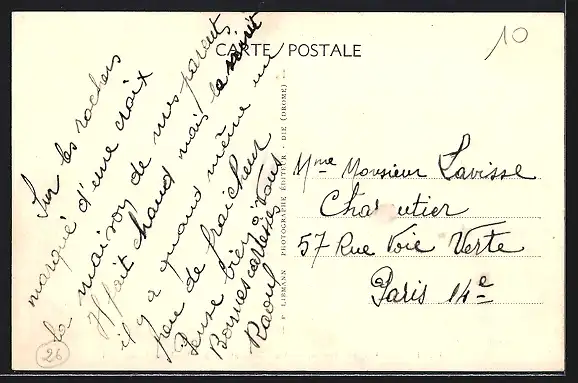 CARTE POSTALE
10
Sur les rochers
marqué d'une croix
la maison de mes parents
Il fait chaud mais la
il y a quand même un
peu de fraicheur
Pense bien à vous
Bonnes caresses
Raoul
26
F. LIEBMANN PHOTOGRAPHE ÉDITEUR - DIE (DROME)
Mme Monsieur Lavisse
Charcutier
57 Rue Voie Verte
Paris 14e